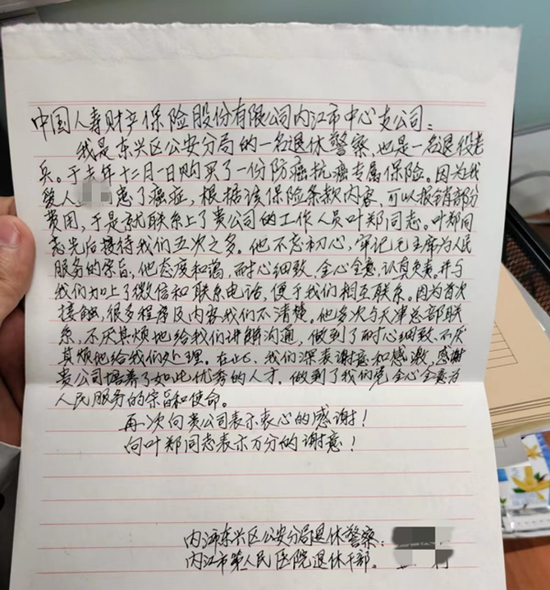 中国人寿财产保险股份有限公司内江市中心支公司：
我是东兴区公安分局的一名退休警察，也是一名退役老
兵。于去年十二月一日购买了一份防癌抗癌专属保险。因为我
爱人患了癌症，根据该保险条款内容，可以报销部分
费用，于是就联系上了贵公司的工作人员叶郑同志。叶郑同
志先后接待我们五次之多。他不忘初心，牢记毛主席为人民
服务的宗旨，他态度和蔼，耐心细致，全心全意，认真负责，并与
我们加上了微信和联系电话，便于我们相互联系。因为首次
接触，很多程序及内容我们不清楚，他多次与天津总部联
系，不厌其烦地给我们讲解沟通，做到了耐心细致、不厌
其烦地给我们处理。在此，我们深表谢意和感激，感谢
贵公司培养了如此优秀的人才，做到了我们党全心全意为
人民服务的宗旨和使命。
再次向贵公司表示衷心的感谢！
向叶郑同志表示万分的谢意！
内江市东兴区公安分局退休警察：
内江市第一人民医院退休干部：